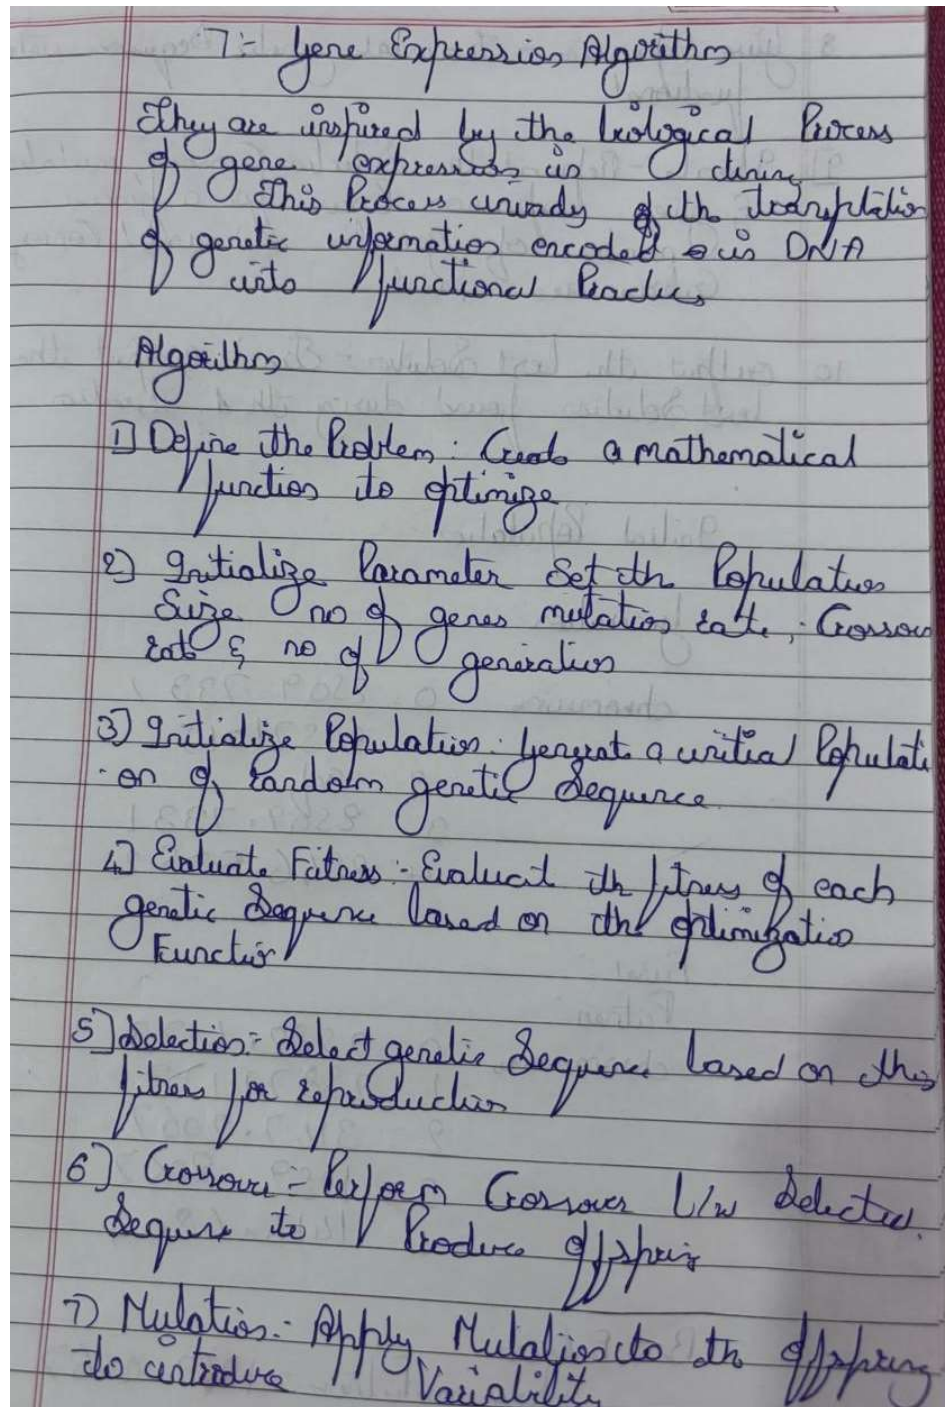 7:- Gene Expression Algorithm
They are inspired by the biological Process
of gene expression in
This Process of th
of genetic information encoded in DNA
into functional
Algorithm
1) Define the Problem: Create a mathematical
function to optimize
2) Initialize Parameter Set th Population
Size no of genes mutation rate, Crossov
rate & no of generation
3) Initialize Population: Generate a initial Populati
-on of random genetic Sequence.
4) Evaluate Fitness:- Evaluat th fitness of each
genetic Sequence based on the optimization
Function
5) Selection:- Select genetic Sequence based on this
fitness for reproduction
6) Crossover:- Perform Crossover b/w Selected.
Sequence to Produce offspring
7) Mutation:- Apply Mutation to th offspring
to introduce Variability